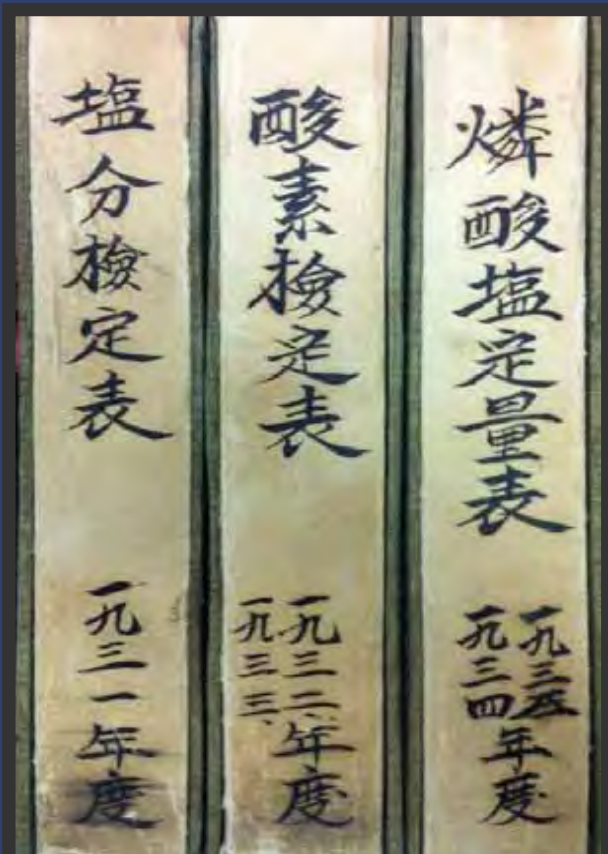 燐酸塩定量表
一九三五
一九三四
年度
酸素檢定表
一九三二、
一九三三、
年度
塩分檢定表
一九三一年度